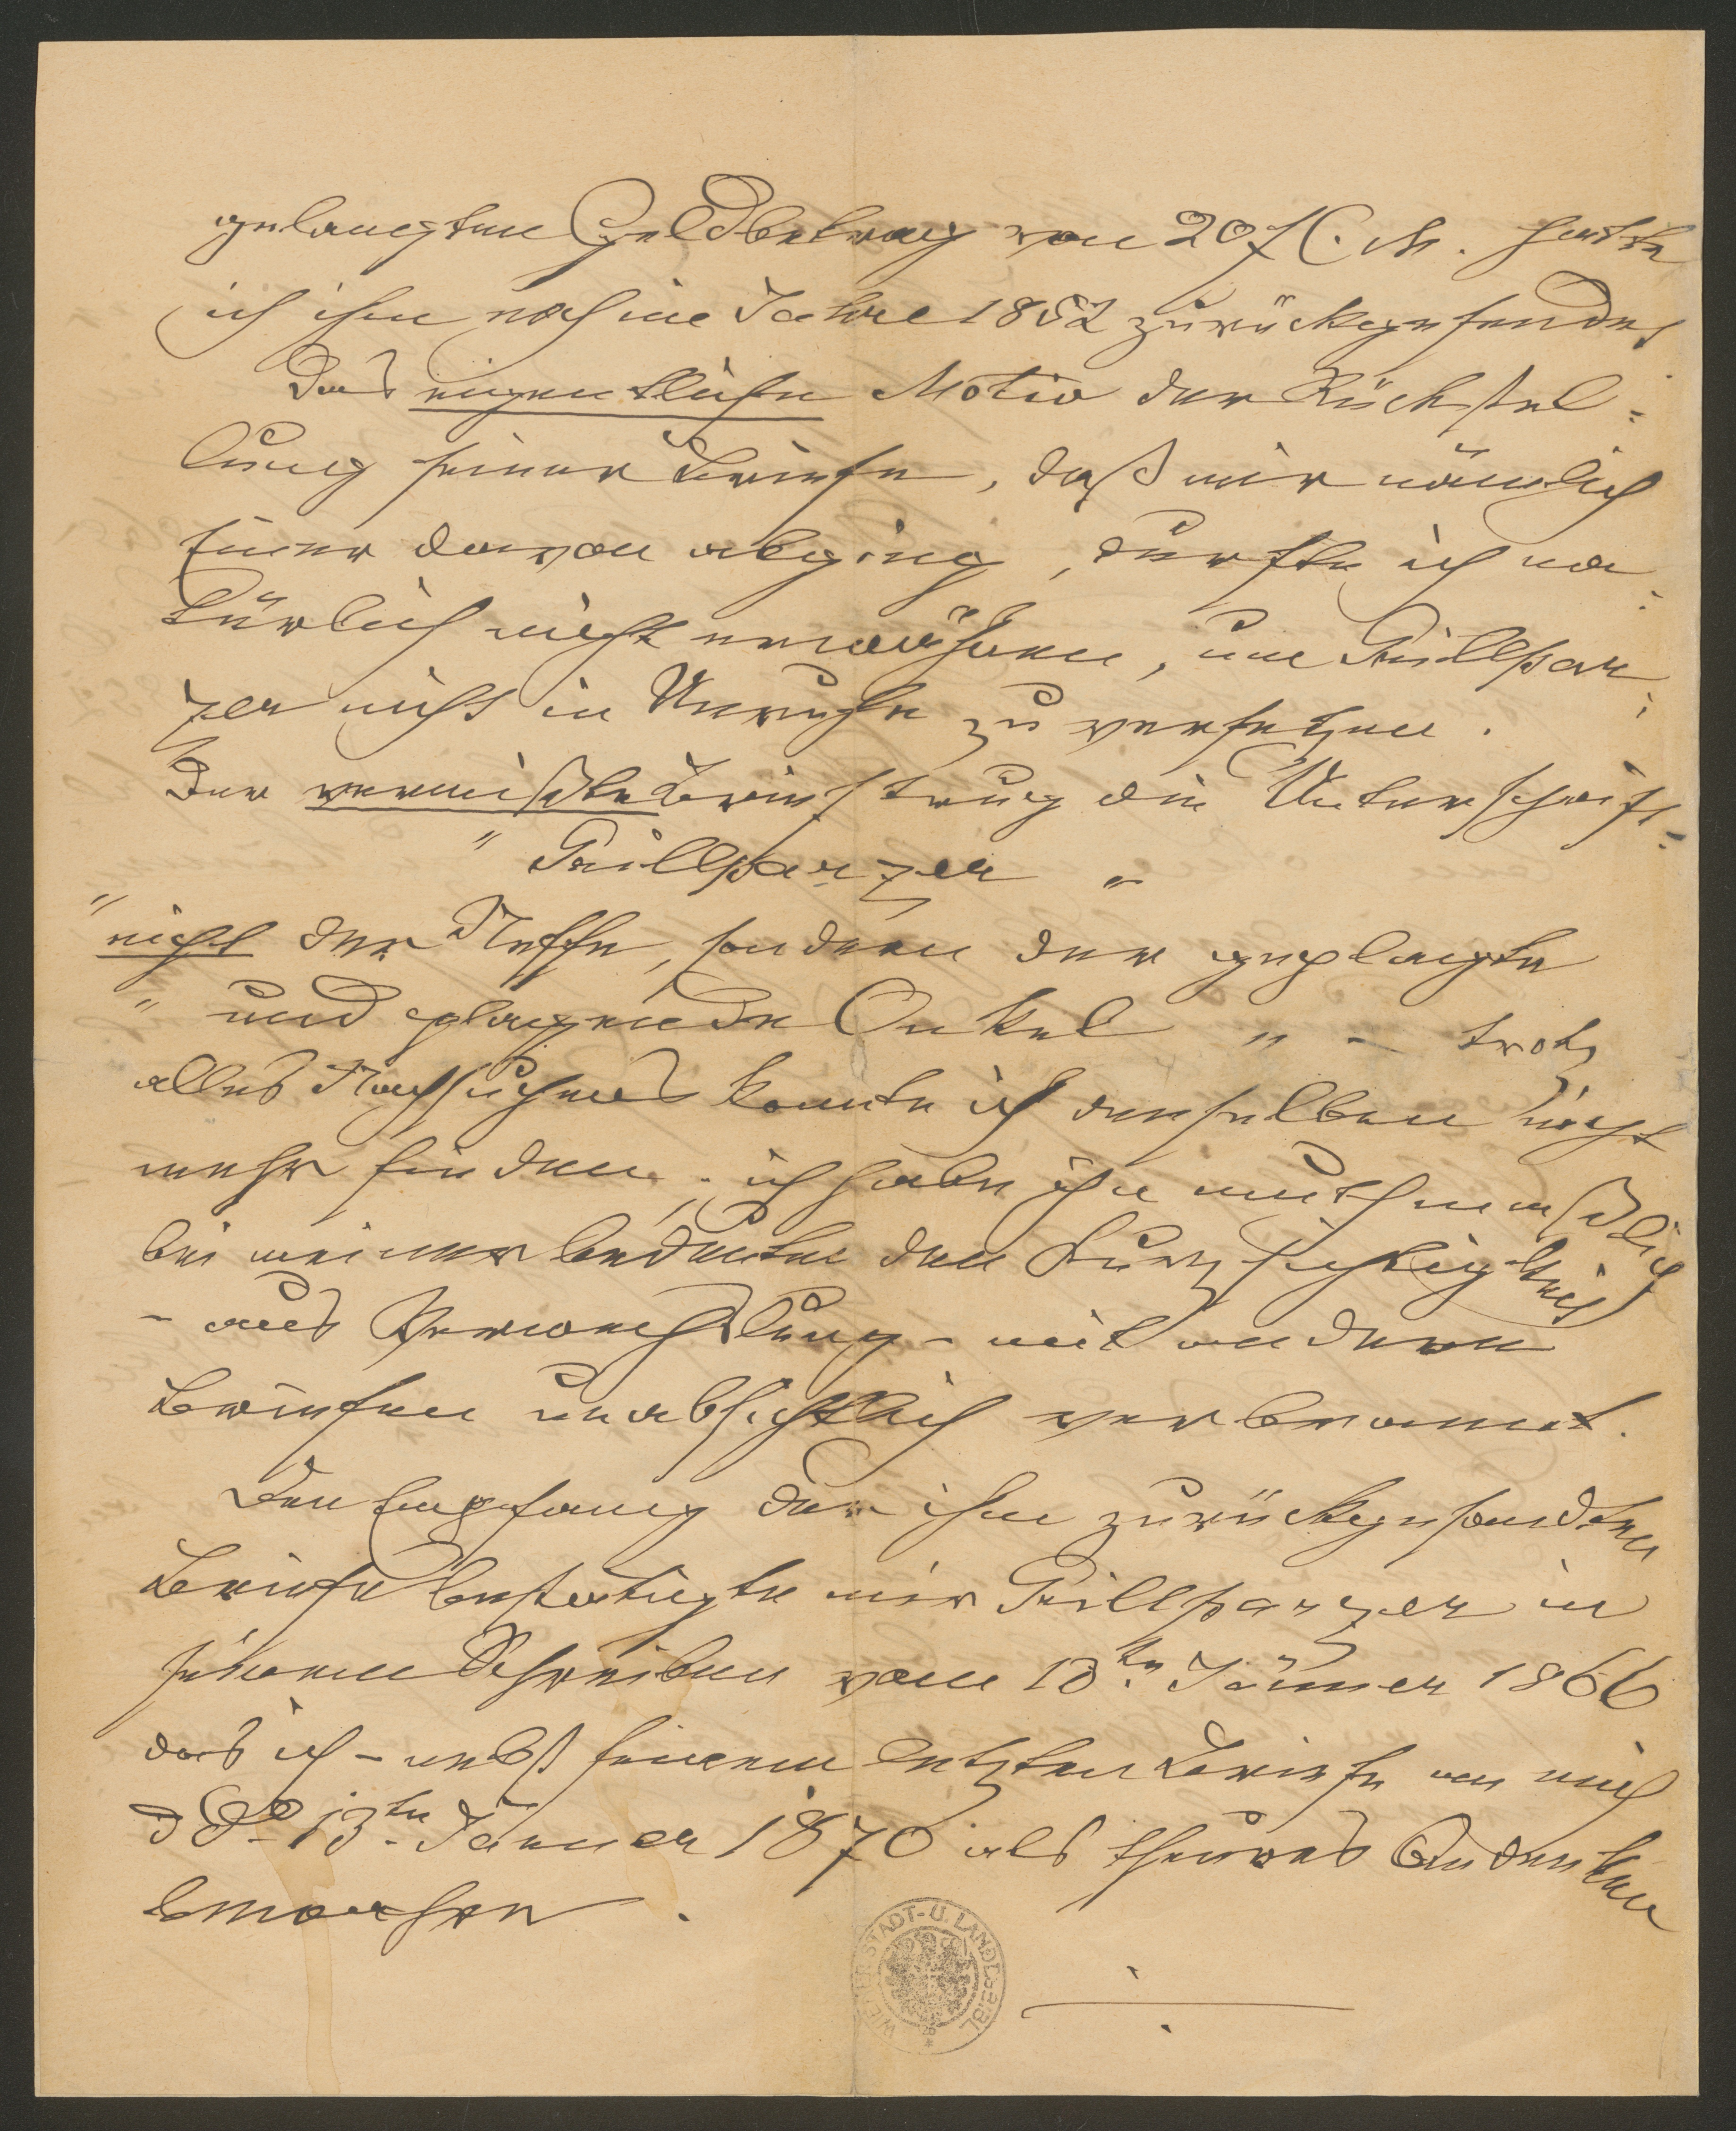 gelangten Geldbetrag von 20 f C. M. hatte
ich ihm noch im Jahre 1852 zurückgesendet
Das eigentliche Motiv der Rückstel-
lung seiner Briefe, daß mir nämlich
einer davon abging, durfte ich na-
türlich nicht erwähnen, um Grillpar-
zer nicht in Unruhe zu versetzen.
Der vermißte Brief trug die Unterschrift:
" Grillparzer "
" nicht der Neffe, sondern der geplagte
" und plagende Onkel " – trotz
alles Nachsuchens konnte ich denselben nicht
mehr finden; ich habe ihn muthmaßlich
bei meiner bedeutenden Kurzsichtigkeit
– aus Verwechslung – mit anderen
Briefen unabsichtlich verbrannt.
Den Empfang der ihm zurückgesandten
Briefe bestätigte mir Grillparzer in
seinem Schreiben vom 13ten Jänner 1866
das ich – nebst seinem letzten Briefe an mich
ddo 13ten Jänner 1870 als theures Andenken
bewahre.
WIENER STADT- U. LANDESBIBL.